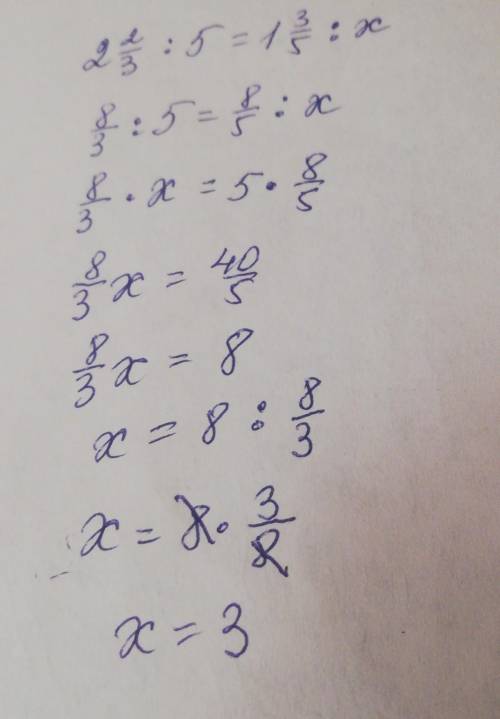 2 2/3 : 5 = 1 3/5 : x
8/3 : 5 = 8/5 : x
8/3 · x = 5 · 8/5
8/3 x = 40/5
8/3 x = 8
x = 8 : 8/3
x = 8 · 3/8
x = 3